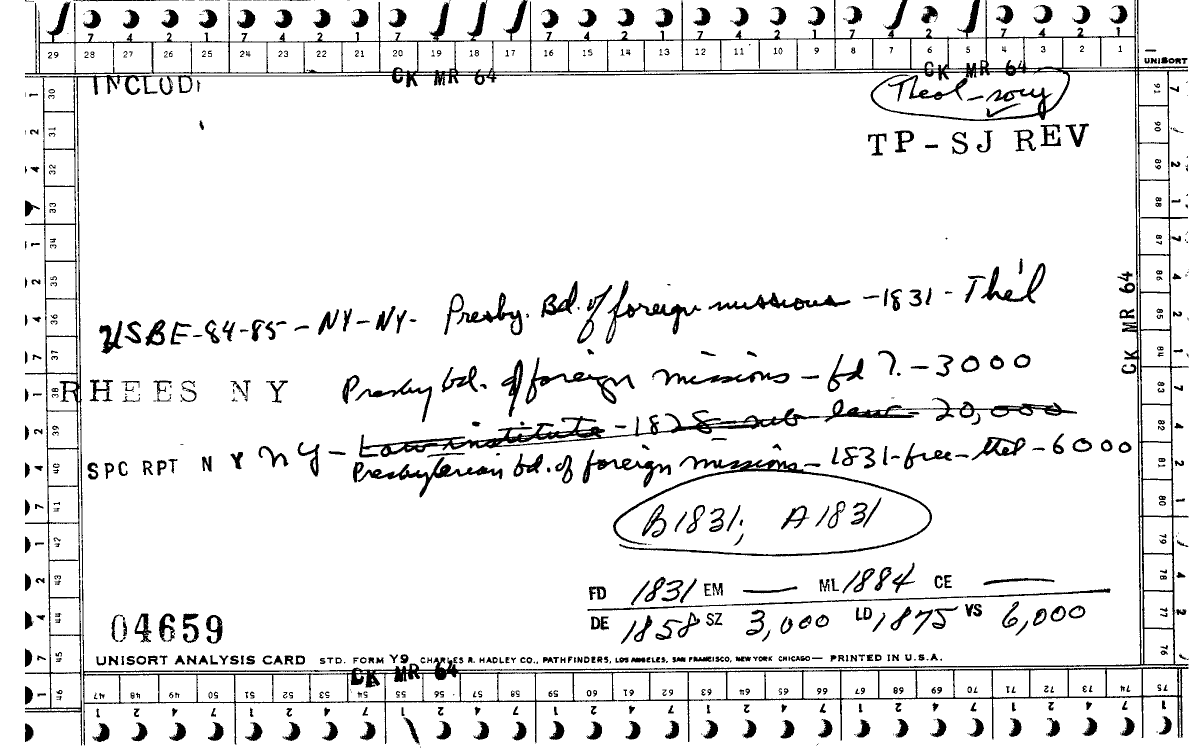 7 4 2 1 7 4 2 1 7 4 2 1 7 4 2 1 7 4 2 1
29 28 27 26 25 24 23 22 21 20 19 18 17 16 15 14 13 12 11 10 9 8 7 6 5 4 3 2 1
UNISORT
INCLUDI
CK MR 64
CK MR 64
Theol-socy
TP-SJ REV
CK MR 64
USBE-84-85-NY-NY- Presby. Bd. of foreign missions -1831- The'l
RHEES NY Presby bd. of foreign missions - fd ?. - 3000
NY- Law institute - 1828 - sub law - 20,000
SPC RPT N Y Presbyterian bd. of foreign missions - 1831-free-thel-6000
B1831; A1831
FD 1831 EM — ML 1884 CE —
DE 1858 SZ 3,000 LD 1875 VS 6,000
04659
UNISORT ANALYSIS CARD STD. FORM Y9 CHARLES R. HADLEY CO., PATHFINDERS, LOS ANGELES, SAN FRANCISCO, NEW YORK CHICAGO — PRINTED IN U.S.A.
CK MR 64
30 31 32 33 34 35 36 37 38 39 40 41 42 43 44 45 46
91 90 89 88 87 86 85 84 83 82 81 80 79 78 77 76
47 48 49 50 51 52 53 54 55 56 57 58 59 60 61 62 63 64 65 66 67 68 69 70 71 72 73 74 75